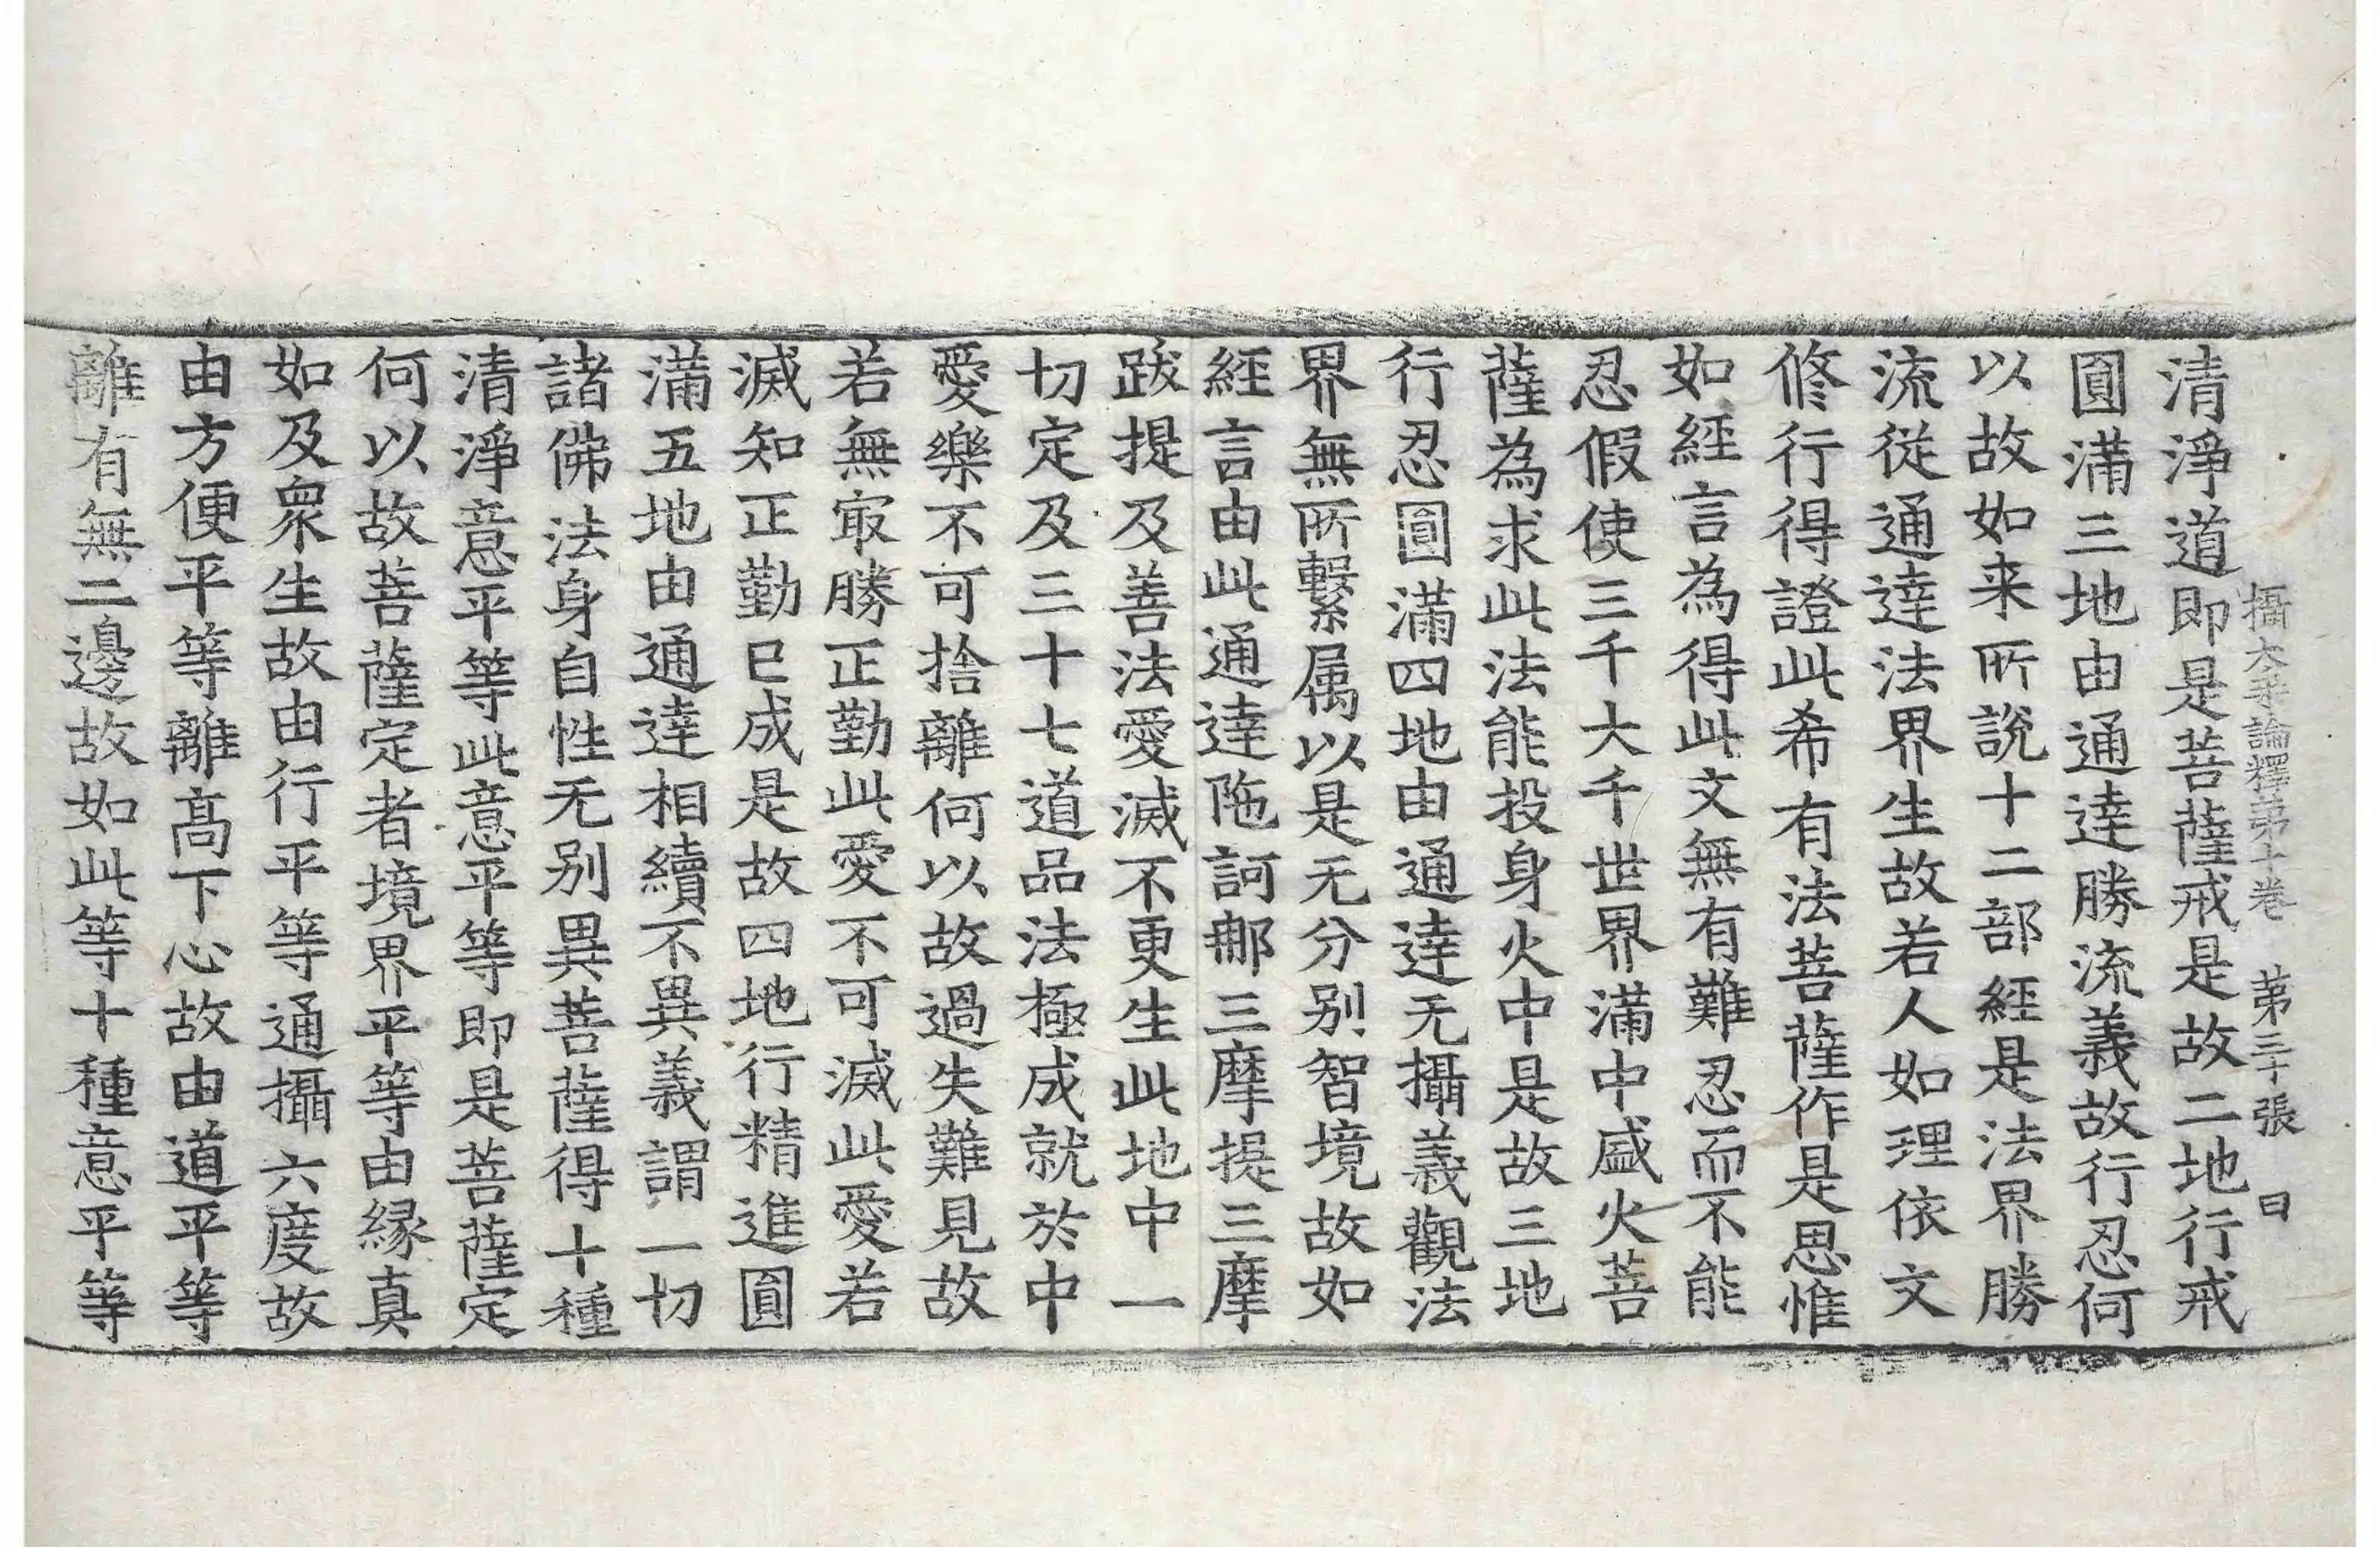 攝大乗論釋第十卷 第三十張 曰
清淨道即是菩薩戒是故二地行戒
圓滿三地由通達勝流義故行忍何
以故如来所說十二部經是法界勝
流從通達法界生故若人如理依文
修行得證此希有法菩薩作是思惟
如經言為得此文無有難忍而不能
忍假使三千大千世界滿中盛火菩
薩為求此法能投身火中是故三地
行忍圓滿四地由通達无攝義觀法
界無所繫属以是无分别智境故如
經言由此通達陁訶郍三摩提三摩
跋提及善法愛滅不更生此地中一
切定及三十七道品法極成就於中
愛樂不可捨離何以故過失難見故
若無㝡勝正勤此愛不可滅此愛若
滅知正勤已成是故四地行精進圓
滿五地由通達相續不異義謂一切
諸佛法身自性无别異菩薩得十種
清淨意平等此意平等即是菩薩定
何以故菩薩定者境界平等由緣真
如及衆生故由行平等通攝六度故
由方便平等離髙下心故由道平等
離有無二邊故如此等十種意平等